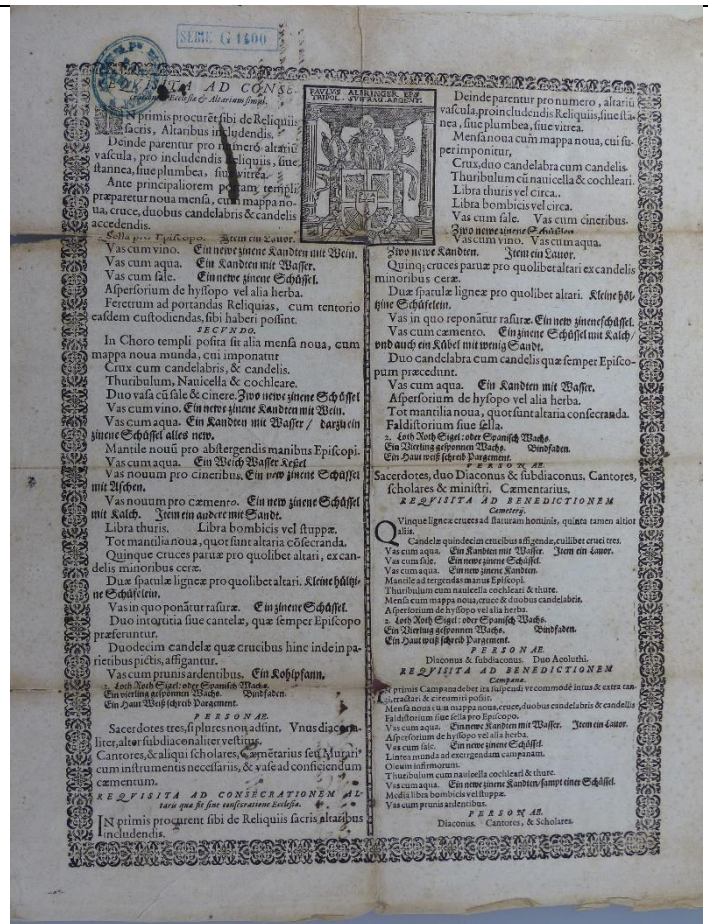 SERIE G 1400
REQVISITA AD CONSE-
Ecclesiæ & Altarium simul.
IN primis procurēt sibi de Reliquiis
sacris, Altaribus includendis.
Deinde parentur pro numero altariū
vascula, pro includendis reliquiis, siue
stannea, siue plumbea, siue vitrea.
Ante principaliorem portam templi
præparetur noua mensa, cum mappa no-
ua, cruce, duobus candelabris & candelis
accedendis.
Sella pro Episcopo. Item ein Lauor.
Vas cum vino. Ein Kandten mit Wein.
Vas cum aqua. Ein Kandten mit Wasser.
Vas cum sale. Ein newe zinene Schüssel.
Aspersorium de hyssopo vel alia herba.
Feretrum ad portandas Reliquias, cum tentorio
easdem custodiendas, sibi haberi possint.
SECVNDO.
In Choro templi posita sit alia mensa noua, cum
mappa noua munda, cui imponatur
Crux cum candelabris, & candelis.
Thuribulum, Nauicella & cochleare.
Duo vasa cū sale & cinere. Zwo newe zinene Schüssel
Vas cum vino. Ein newe zinene Kandten mit Wein.
Vas cum aqua. Ein Kandten mit Wasser / darzu ein
zinene Schüssel alles new.
Mantile nouū pro abstergendis manibus Episcopi.
Vas cum aqua. Ein Weich Wasser Keßel
Vas nouum pro cineribus. Ein new zinene Schüssel
mit Aschen.
Vas nouum pro cæmento. Ein new zinene Schüssel
mit Kalch. Item ein andere mit Sandt.
Libra thuris. Libra bombicis vel stuppæ.
Tot mantilia noua, quot sunt altaria cōsecranda.
Quinque cruces paruæ pro quolibet altari, ex can-
delis minoribus ceræ.
Duæ spatulæ ligneæ pro quolibet altari. Kleine hültzi-
ne Schüfelein.
Vas in quo ponātur rasuræ. Ein zinene Schüssel.
Duo intortitia siue cantelæ, quæ semper Episcopo
præferuntur.
Duodecim candelæ quæ crucibus hinc inde in pa-
rietibus pictis, affigantur.
Vas cum prunis ardentibus. Ein Kohlpfann.
2. Loth Roth Sigel: oder Spanisch Wachs.
Ein vierling gesponnen Wachs. Bindfaden.
Ein Haut Weiß schreib Pargement.
PERSONAE.
Sacerdotes tres, si plures non adsint. Vnus diacona-
liter, alter subdiaconaliter vestitus.
Cantores, & aliqui scholares, Cæmētarius seu Murari
cum instrumentis necessariis, & vase ad conficiendum
cæmentum.
REQVISITA AD CONSECRATIONEM AL-
taris quæ fit sine consecratione Ecclesiæ.
IN primis procurent sibi de Reliquiis sacris altaribus
includendis.
PAVLVS ALBRINGER EPS
TRIPOL. SVFFRAG. ARGENT.
Deinde parentur pro numero, altariū
vascula, pro includendis Reliquiis, siue stā-
nea, siue plumbea, siue vitrea.
Mensa noua cum mappa noua, cui su-
per imponitur,
Crux, duo candelabra cum candelis.
Thuribulum cū nauicella & cochleari.
Libra thuris vel circa.
Libra bombicis vel circa.
Vas cum sale. Vas cum cineribus.
Zwo newe zinene Schüsslen
Vas cum vino. Vas cum aqua.
Zwo newe Kandten. Item ein Lauor.
Quinq; cruces paruæ pro quolibet altari ex candelis
minoribus ceræ.
Duæ spatulæ ligneæ pro quolibet altari. Kleine höl-
tzine Schüfelein.
Vas in quo reponātur rasuræ. Ein new zinene schüssel.
Vas cum cæmento. Ein zinene Schüssel mit Kalch /
vnd auch ein Kübel mit wenig Sandt.
Duo candelabra cum candelis quæ semper Episco-
pum præcedunt.
Vas cum aqua. Ein Kandten mit Wasser.
Aspersorium de hysopo vel alia herba.
Tot mantilia noua, quot sunt altaria consecranda.
Faldistorium siue sella.
2. Loth Roth Sigel: oder Spanisch Wachs.
Ein Vierling gesponnen Wachs. Bindfaden.
Ein Haut weiß schreib Pargement.
PERSONAE.
Sacerdotes, duo Diaconus & subdiaconus, Cantores,
scholares & ministri. Cæmentarius.
REQVISITA AD BENEDICTIONEM
Cæmeterij.
QVinque ligneæ cruces ad staturam hominis, quinta tamen altior
aliis.
Candelæ quindecim crucibus affigendæ, cuilibet cruci tres.
Vas cum aqua. Ein Kandten mit Wasser. Item ein Lauor.
Vas cum sale. Ein new zinene Schüssel.
Vas cum aqua. Ein new zinene Kandten.
Mantile ad tergendas manus Episcopi.
Thuribulum cum nauicella cochleari & thure.
Mensa cum mappa noua, cruce & duobus candelabris.
Aspersorium de hyssopo vel alia herba.
2. Loth Roth Sigel: oder Spanisch Wachs.
Ein Vierling gesponnen Wachs. Bindfaden.
Ein Haut weiß schreib Pargement.
PERSONAE.
Diaconus & subdiaconus. Duo Acoluthi.
REQVISITA AD BENEDICTIONEM
Campanæ.
IN primis Campana debet ita suspendi vt commodè intus & extra tan-
gi, tractari & circumiri possit.
Mensa noua cum mappa noua, cruce, duobus candelabris & candelis
Faldistorium siue sella pro Episcopo.
Vas cum aqua. Ein newe Kandten mit Wasser. Item ein Lauor.
Aspersorium de hyssopo vel alia herba.
Vas cum sale. Ein newe zinene Schüssel.
Lintea munda ad extergendam campanam.
Oleum infirmorum.
Thuribulum cum nauicella cochleari & thure.
Vas cum aqua. Ein newe zinene Kandten / sampt einer Schüssel.
Media libra bombicis vel stuppæ.
Vas cum prunis ardentibus.
PERSONAE.
Diaconus. Cantores, & Scholares.